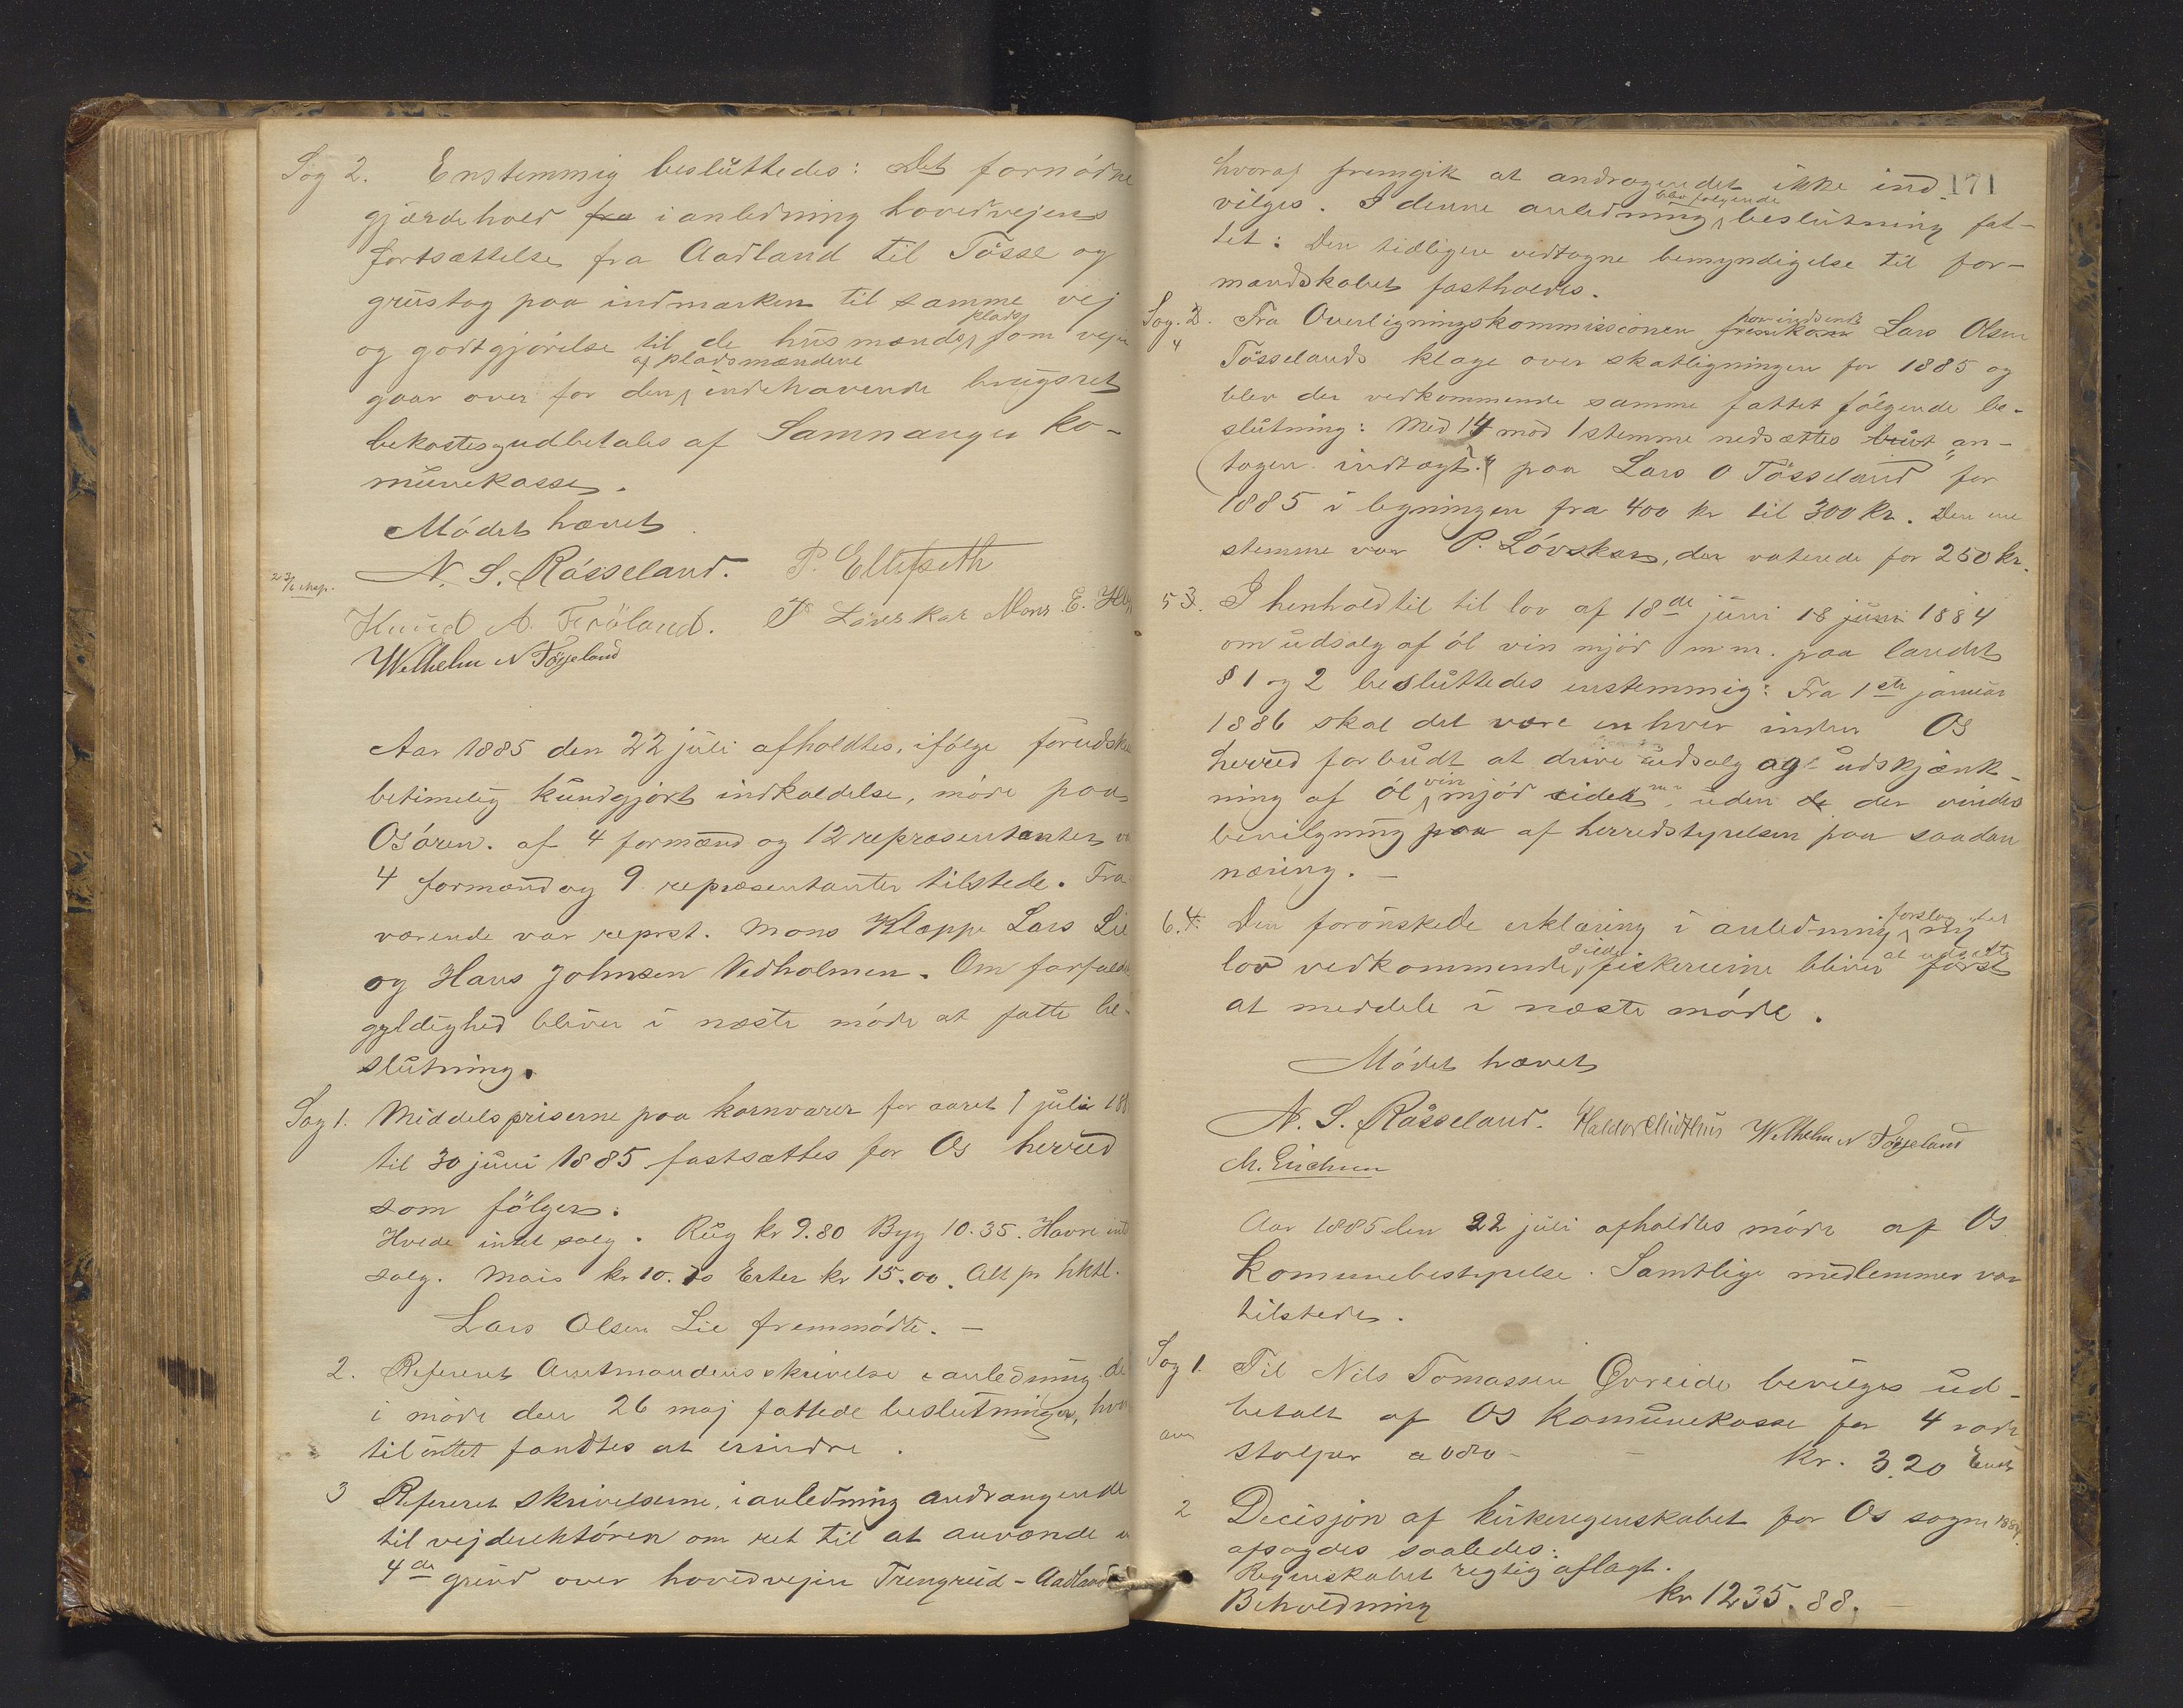 Sag 2. Enstemmig besluttedes: Det fornödne
gjærdehold fra i anledning hovedvejens
fortsættelse fra Aadland til Tösse og
grustag paa indmarken til samme vej
og godtgjörelse til de husmands plads som veien
gaar over for den af pladsmændene indehavende brugsret
bekostes og udbetales af Samnanger ko-
munekasse.
Mödet hævet
N. S. Rösseland. P. Ellefseth
Knud A. Fröland. P Lövskar Mons E.
Wilhelm N Töseland
Aar 1885 den 22 juli afholdtes, ifölge forudske
betimelig kundgjort indkaldelse, möde paa
Osören. af 4 formænd og 12 repræsentanter va
4 formænd og 9 repræsentanter tilstede. Fra
værende var reprst. Mons Klæppe Lars Lie
og Hans Johnsen Vedholmen. Om forfalds
gyldighed bliver i næste möde at fatte be-
slutning.
Sag 1. Middelspriserne paa kornvarer for aaret 1 juli 188
til 30 juni 1885 fastsættes for Os herred
som fölger:
Hvede intet salg. Rug kr 9.80 Byg 10.35. Havre int
salg. Mais kr 10. Erter kr 15.00. Alt pr hktl.
Lars Olsen Lie fremmödte. —
2. Referert Amtmandens skrivelse i anledning de
i möde den 26 maj fattede beslutninger, hvor
til intet fandtes at erindre.
3 Referert skrivelserne, i anledning andragende
til vejdirektören om ret til at anvende
4de grind over hovedvejen Trengreid - Aadland
171
hvoraf fremgik at andragendet ikke ind-
vilges. I denne anledning blev fölgende beslutning fat-
tet: Den tidligere vedtagne bemyndigelse til for-
mandskabet fastholdes.
Sag. 2. 4 Fra Overligningskommissionen fremkom Lars Olsen
Tösselands klage over skatligningen for 1885 og
blev der vedkommende samme fattet fölgende be-
slutning: Med 14 mod 1 stemme nedsættes an-
tagen indtægt paa Lars O Tösseland for
1885 i ligningen fra 400 kr til 300 kr. Den ene
stemme var P. Lövskar, der voterede for 250 kr.
5 3. I henhold til til lov af 18de juni 18 juni 1884
om udsalg af öl vin mjöd m m. paa landet
§ 1 og 2 besluttedes enstemmig: Fra 1ste januar
1886 skal det være enhver inden Os
herred forbudt at drive udsalg og udskjænk-
ning af öl vin mjöd cider uden de der vindes
bevilgning paa af herredstyrelsen paa saadan
næring. —
6. 4. Den forönskede erklæring i anledning forslag til ny
lov vedkommende sildefiskerierne bliver at udsætte först
at meddele i næste möde.
Mödet hævet
N. S. Rösseland. Haldor Midthus Wilhelm N Töseland
M. Erichsen
Aar 1885 den 22 juli afholdtes möde af Os
Komunebestyrelse. Samtlige medlemmer var
tilstede.
Sag 1. Til Nils Tomassen Øvreide bevilges ud-
betalt af Os Komunekasse for 4 rode
stolper a 080 - kr. 3.20
2 Decisjon af kirkeregnskabet for Os sogn 1884
afsagdes saaledes:
Regnskabet regtig aflagt.
Beholdning kr 1235.88.